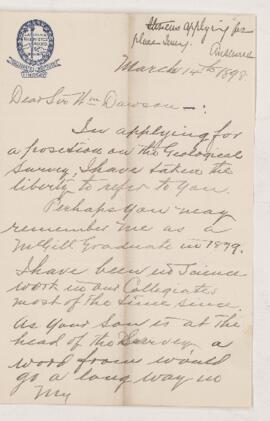 Stevens applying for
place Survey.
Answered
March 14th 1898.
Dear Sir Wm Dawson—:
In applying for
a position on the Geological
Survey, I have taken the
liberty to refer to you.
Perhaps you may
remember me as a
McGill Graduate in 1879.
I have been in Science
work in our Collegiates
most of the time since.
As your Son is at the
head of the Survey a
word from would
go a long way in
my